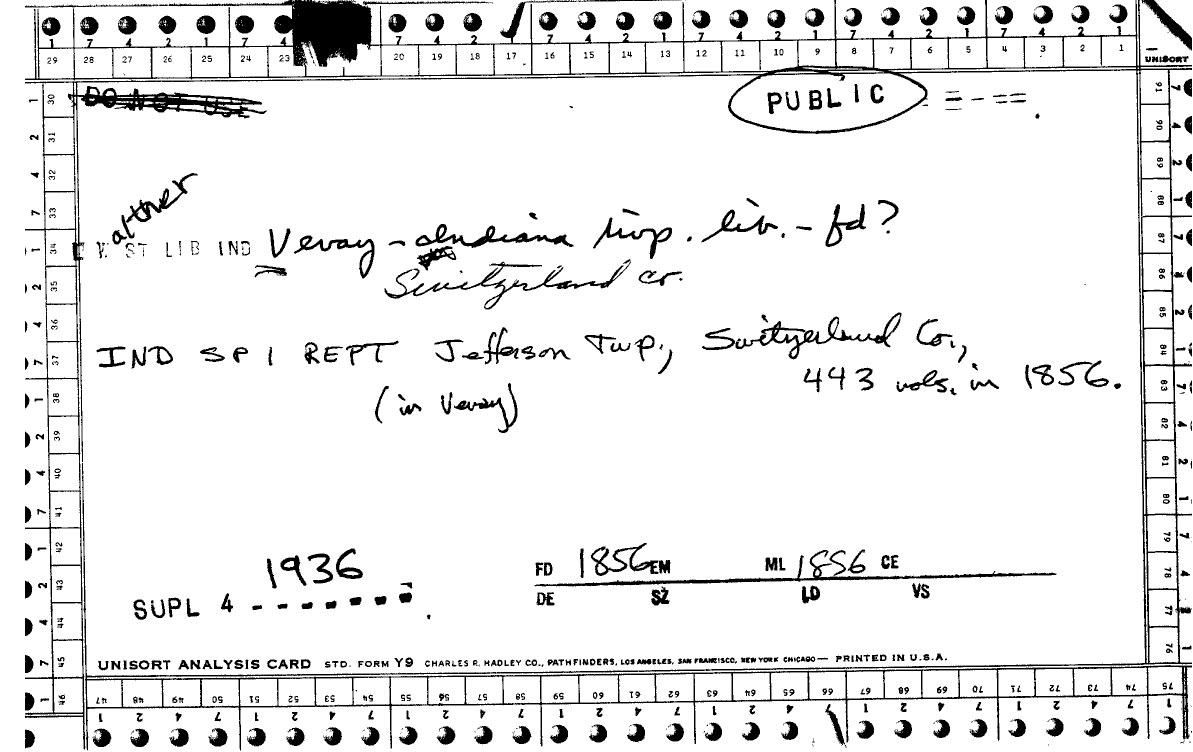 1 7 4 2 1 7 4 7 4 2 7 4 2 1 7 4 2 1 7 4 2 1
29 28 27 26 25 24 23 20 19 18 17 16 15 14 13 12 11 10 9 8 7 6 5 4 3 2 1
UNISORT
DO NOT USE
PUBLIC
alther
W ST LIB IND Vevay - Indiana twp. lib. - fd?
Switzerland co.
IND SPI REPT Jefferson Twp., Switzerland Co.,
443 vols. in 1856.
(in Vevay)
1936
SUPL 4
FD 1856 EM ML 1856 CE
DE SZ LD VS
UNISORT ANALYSIS CARD STD. FORM Y9 CHARLES R. HADLEY CO., PATHFINDERS, LOS ANGELES, SAN FRANCISCO, NEW YORK CHICAGO — PRINTED IN U.S.A.
46 47 48 49 50 51 52 53 54 55 56 57 58 59 60 61 62 63 64 65 66 67 68 69 70 71 72 73 74 75